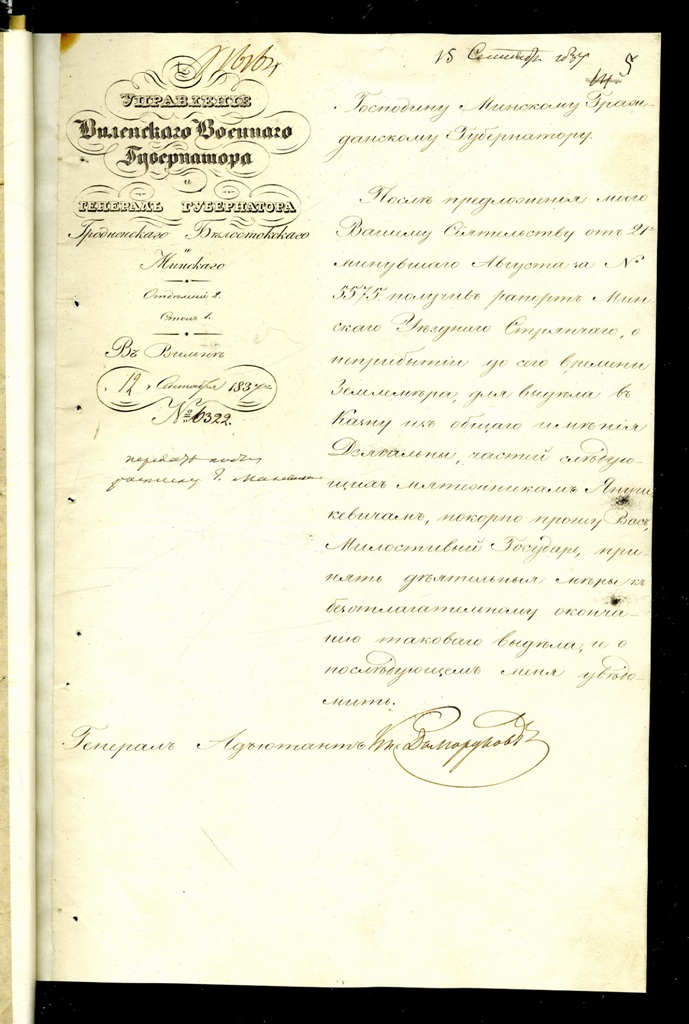 15 Сентябр. 1837
5
УПРАВЛЕНІЕ
Виленскаго Военнаго
Губернатора
и
ГЕНЕРАЛЪ ГУБЕРНАТОРА
Гродненскаго Бѣлостокскаго
и
Минскаго
Отдѣленіе 2.
Столъ 1.
Въ Вильнѣ
12 Сентября 1837 г.
№ 6322.
передать подъ
росписку Г.
Господину Минскому Граж-
данскому Губернатору.
Послѣ предложенія моего
Вашему Сіятельству отъ 21го
минувшаго Августа за №
5575 получивъ рапортъ Мин-
скаго Уѣзднаго Стряпчаго, о
неприбытіи до сего времени
Землемѣра, для выдѣла въ
Казну изъ общаго имѣнія
Дзягильны, частей слѣдую-
щихъ мятежникамъ Януш-
кевичамъ, покорно прошу Васъ,
Милостивый Государь, при-
нять дѣятельныя мѣры къ
безотлагательному оконча-
нію таковаго выдѣла, и о
послѣдующемъ меня увѣдо-
мить.
Генералъ Адъютантъ Кн. Долгоруковъ